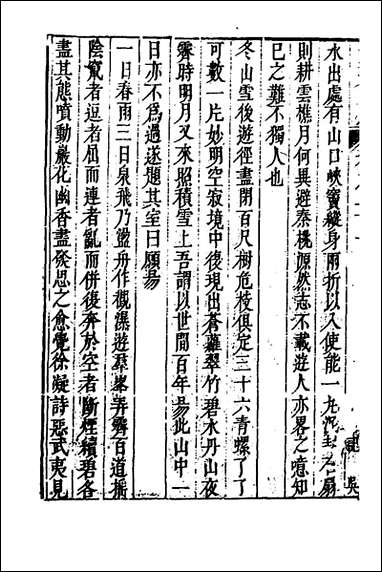 水出處有山口峽竇縱身兩折以入使能一丸泥封之扃
則耕雲樵月何異避秦桃源然志不載遊人亦畧之噫知
己之難不獨人也
冬山雪後遊徑盡閉百尺樹危枝俱定三十六青螺了了
可數一片妙明空寂境中後現出蒼蘿翠竹碧水丹山夜
霽時明月又來照積雪上吾謂以世間百年易此山中一
日亦不為過遂題其室曰願易
一日春雨三日泉飛乃盪舟作觀瀑遊羣峯弄霽百道搖
陰竄者逗者屈而連者亂而併復奔於空者斷煙續碧各
盡其態噴動巖花幽香盡發思之愈覺徐凝詩惡武夷見